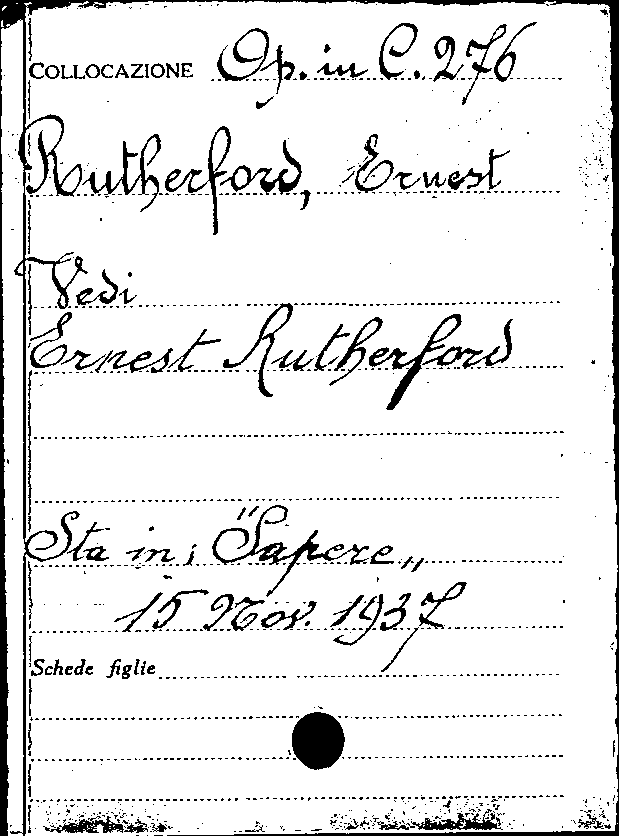 COLLOCAZIONE Op. in C. 276
Rutherford, Ernest
Vedi
Ernest Rutherford
Sta in; "Sapere„
15 Nov. 1937
Schede figlie